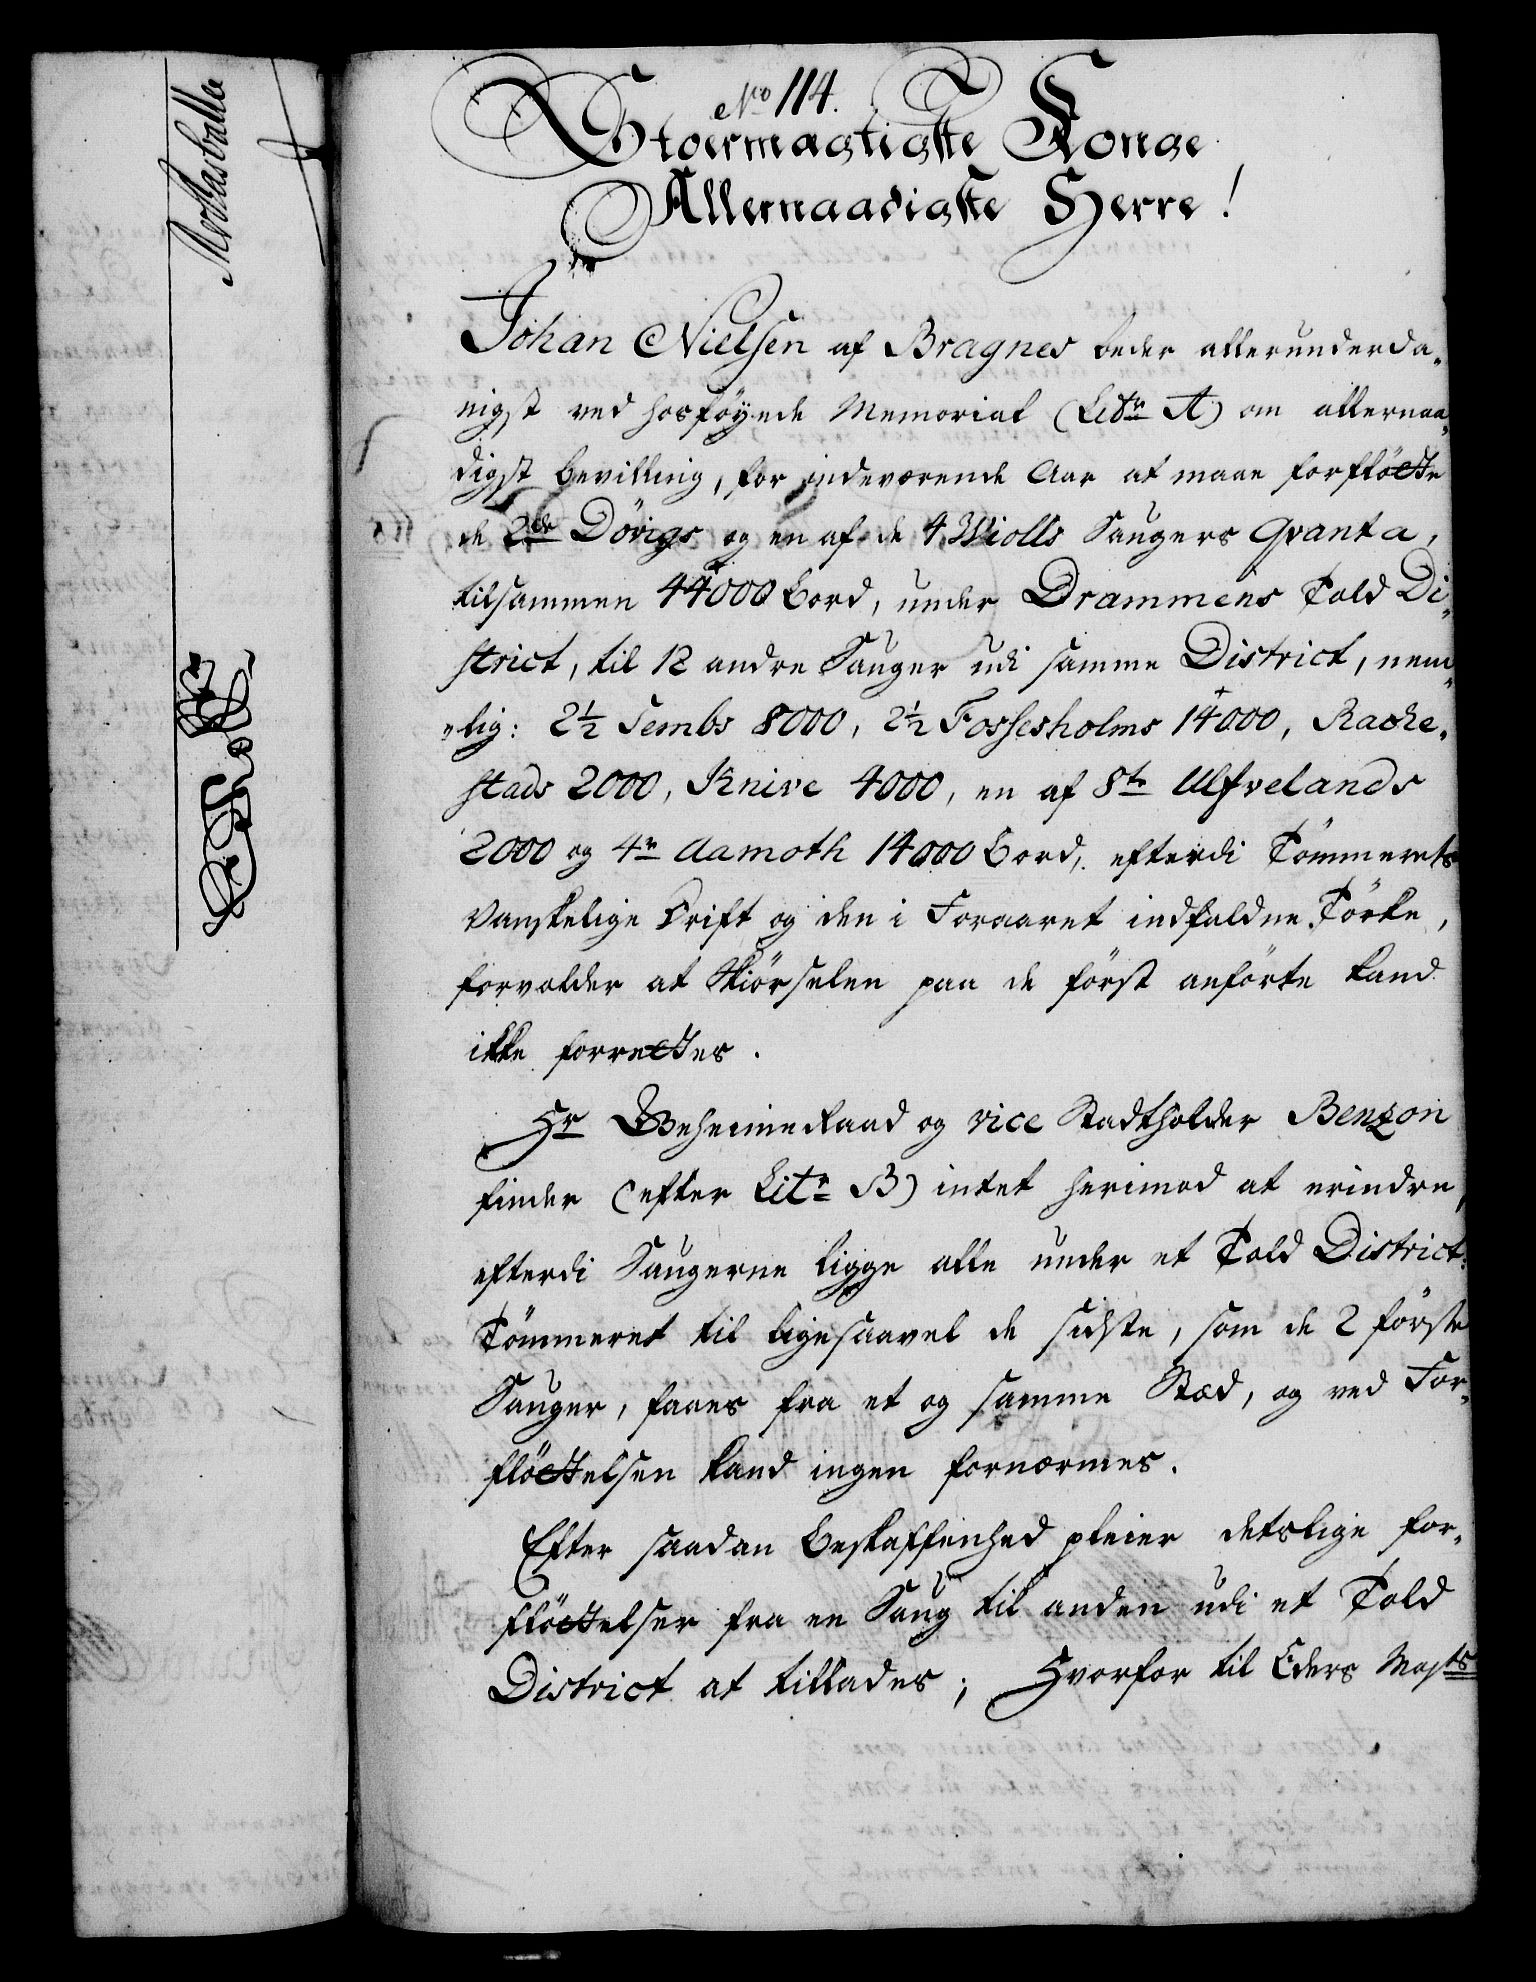 No 114.
Stoermægtigste Konge
Allernaadigste Herre!
Johan Nielsen af Bragnes beder allerunderda-
nigst ved hosføyede Memorial (Litr A) om allernaa-
digst bevilling, for indeværende Aar at maae forfløtte
de 2de Dörigs og en af de 4 Wiolls Saugers Qvanta,
tilsammen 44000 Bord, under Drammens Told Di-
strict, til 12 andre Sauger udi samme District, nem-
lig: 2½ Sembs 8000, 2½ Fossesholms 14000, Racke-
stads 2000, Knive 4000, en af 8te Ulfvelands
2000 og 4re Aamoth 14000 Bord, efterdi Tömmerets
vanskelige Drift og den i Foraaret indfaldne Törke,
forvolder at Skiörselen paa de först anförte kand
ikke forrettes.
Hr Geheimeraad og vice Stadtholder Benzon
finder (efter Litr B) intet herimod at erindre,
efterdi Saugerne ligge alle under et Told District.
Tömmeret til ligesaavel de sidste, som de 2 förste
Sauger, faaes fra et og samme Stæd, og ved For-
fløttelsen kand ingen fornærmes.
Efter saadan Beskaffenhed pleier detslige for-
fløttelser fra en Saug til anden udi et Told
District at tillades; Hvorfor til Eders Majts